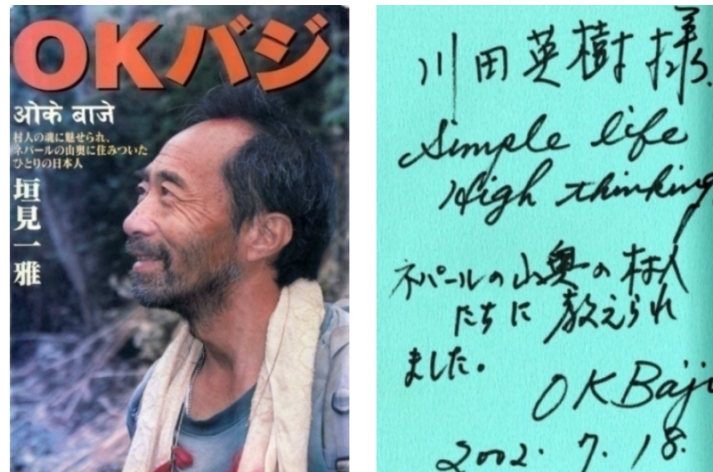 OKバジ
ओके बाजे
村人の魂に魅せられ、
ネパールの山奥に住みついた
ひとりの日本人
垣見一雅
川田英樹様.
Simple life
High thinking
ネパールの山奥の村人
たちに教えられ
ました。
OKBaji
2002. 7. 18.